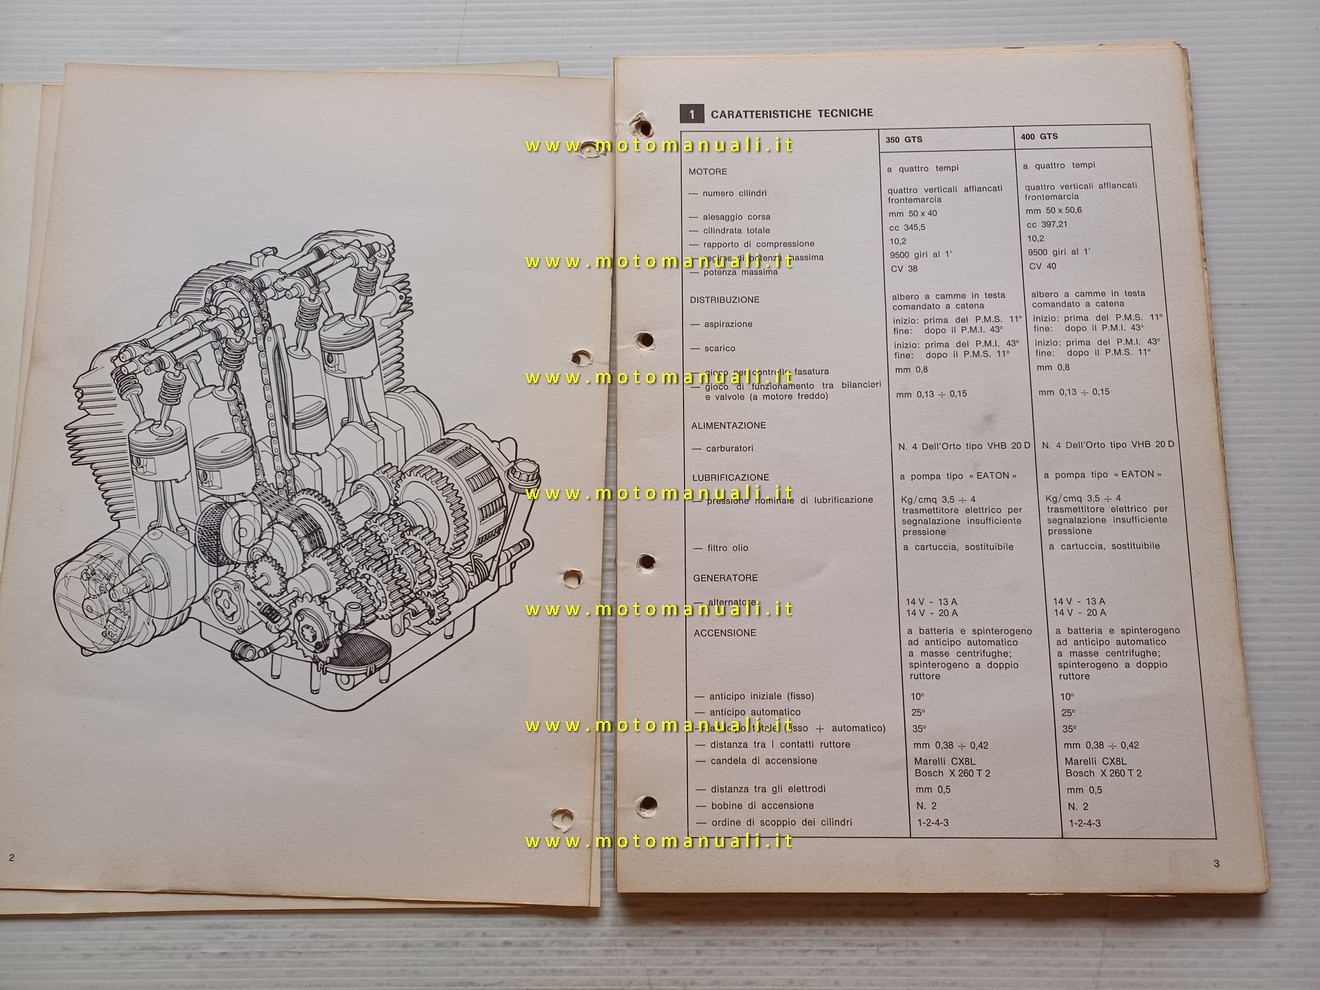 2
1 CARATTERISTICHE TECNICHE
350 GTS 400 GTS
MOTORE a quattro tempi a quattro tempi
— numero cilindri quattro verticali affiancati quattro verticali affiancati
frontemarcia frontemarcia
— alesaggio corsa mm 50 x 40 mm 50 x 50,6
— cilindrata totale cc 345,5 cc 397,21
— rapporto di compressione 10,2 10,2
— regime di potenza massima 9500 giri al 1' 9500 giri al 1'
— potenza massima CV 38 CV 40
DISTRIBUZIONE albero a camme in testa albero a camme in testa
comandato a catena comandato a catena
— aspirazione inizio: prima del P.M.S. 11° inizio: prima del P.M.S. 11°
fine: dopo il P.M.I. 43° fine: dopo il P.M.I. 43°
— scarico inizio: prima del P.M.I. 43° inizio: prima del P.M.I. 43°
fine: dopo il P.M.S. 11° fine: dopo il P.M.S. 11°
— gioco per controllo fasatura mm 0,8 mm 0,8
— gioco di funzionamento tra bilancieri
e valvole (a motore freddo) mm 0,13 ÷ 0,15 mm 0,13 ÷ 0,15
ALIMENTAZIONE
— carburatori N. 4 Dell'Orto tipo VHB 20 D N. 4 Dell'Orto tipo VHB 20 D
LUBRIFICAZIONE a pompa tipo « EATON » a pompa tipo « EATON »
— pressione nominale di lubrificazione Kg/cmq 3,5 ÷ 4 Kg/cmq 3,5 ÷ 4
trasmettitore elettrico per trasmettitore elettrico per
segnalazione insufficiente segnalazione insufficiente
pressione pressione
— filtro olio a cartuccia, sostituibile a cartuccia, sostituibile
GENERATORE
— alternatore 14 V - 13 A 14 V - 13 A
14 V - 20 A 14 V - 20 A
ACCENSIONE a batteria e spinterogeno a batteria e spinterogeno
ad anticipo automatico ad anticipo automatico
a masse centrifughe; a masse centrifughe;
spinterogeno a doppio spinterogeno a doppio
ruttore ruttore
— anticipo iniziale (fisso) 10° 10°
— anticipo automatico 25° 25°
— anticipo totale (fisso + automatico) 35° 35°
— distanza tra i contatti ruttore mm 0,38 ÷ 0,42 mm 0,38 ÷ 0,42
— candela di accensione Marelli CX8L Marelli CX8L
Bosch X 260 T 2 Bosch X 260 T 2
— distanza tra gli elettrodi mm 0,5 mm 0,5
— bobine di accensione N. 2 N. 2
— ordine di scoppio dei cilindri 1-2-4-3 1-2-4-3
3
www.motomanuali.it
www.motomanuali.it
www.motomanuali.it
www.motomanuali.it
www.motomanuali.it
www.motomanuali.it
www.motomanuali.it